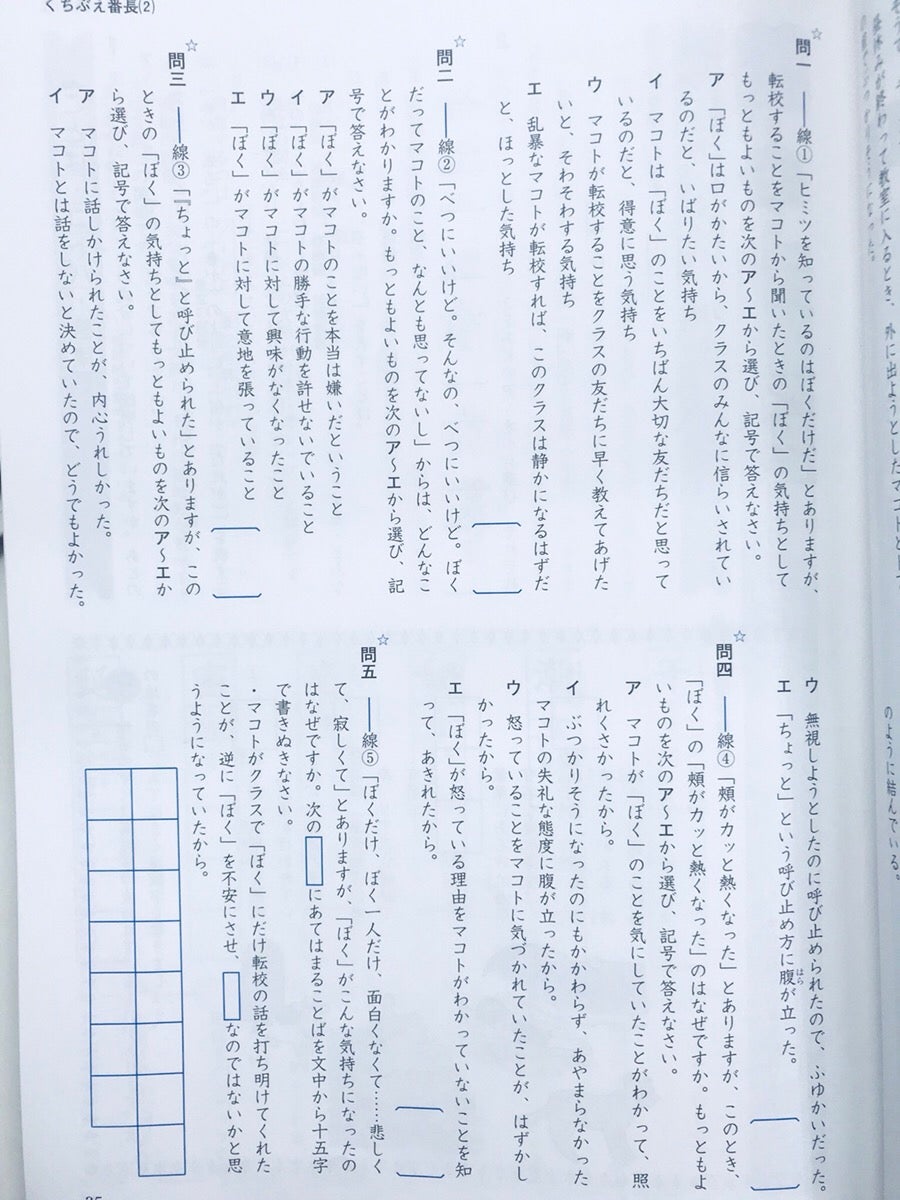 くちぶえ番長(2)
☆問一 ――線①「ヒミツを知っているのはぼくだけだ」とありますが、
転校することをマコトから聞いたときの「ぼく」の気持ちとして
もっともよいものを次のア～エから選び、記号で答えなさい。
ア 「ぼく」は口がかたいから、クラスのみんなに信らいされてい
るのだと、いばりたい気持ち
イ マコトは「ぼく」のことをいちばん大切な友だちだと思って
いるのだと、得意に思う気持ち
ウ マコトが転校することをクラスの友だちに早く教えてあげた
いと、そわそわする気持ち
エ 乱暴なマコトが転校すれば、このクラスは静かになるはずだ
と、ほっとした気持ち
☆問二 ――線②「べつにいいけど。そんなの、べつにいいけど。ぼく
だってマコトのこと、なんとも思ってないし」からは、どんなこ
とがわかりますか。もっともよいものを次のア～エから選び、記
号で答えなさい。
ア 「ぼく」がマコトのことを本当は嫌いだということ
イ 「ぼく」がマコトの勝手な行動を許せないでいること
ウ 「ぼく」がマコトに対して興味がなくなったこと
エ 「ぼく」がマコトに対して意地を張っていること
☆問三 ――線③「『ちょっと』と呼び止められた」とありますが、この
ときの「ぼく」の気持ちとしてもっともよいものを次のア～エか
ら選び、記号で答えなさい。
ア マコトに話しかけられたことが、内心うれしかった。
イ マコトとは話をしないと決めていたので、どうでもよかった。
ウ 無視しようとしたのに呼び止められたので、ふゆかいだった。
エ 「ちょっと」という呼び止め方に腹が立った。
はら
☆問四 ――線④「頰がカッと熱くなった」とありますが、このとき、
「ぼく」の「頰がカッと熱くなった」のはなぜですか。もっともよ
いものを次のア～エから選び、記号で答えなさい。
ア マコトが「ぼく」のことを気にしていたことがわかって、照
れくさかったから。
イ ぶつかりそうになったのにもかかわらず、あやまらなかった
マコトの失礼な態度に腹が立ったから。
ウ 怒っていることをマコトに気づかれていたことが、はずかし
かったから。
エ 「ぼく」が怒っている理由をマコトがわかっていないことを知
って、あきれたから。
☆問五 ――線⑤「ぼくだけ、ぼく一人だけ、面白くなくて……悲しく
て、寂しくて」とありますが、「ぼく」がこんな気持ちになったの
はなぜですか。次の□にあてはまることばを文中から十五字
で書きぬきなさい。
・マコトがクラスで「ぼく」にだけ転校の話を打ち明けてくれた
ことが、逆に「ぼく」を不安にさせ、□なのではないかと思
うようになっていたから。